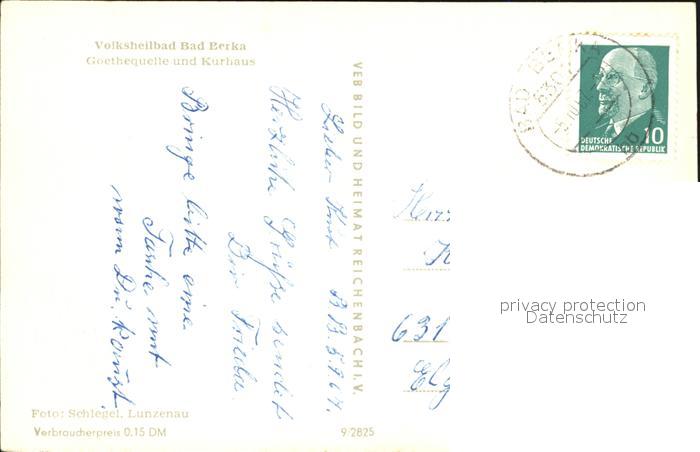 Volksheilbad Bad Berka
Goethequelle und Kurhaus
VEB BILD UND HEIMAT REICHENBACH I.V.
Lieber Kurt B B. 5.9.64.
Herzliche Grüße sendet
Dir Frieda.
Bringe bitte eine
Tasche mit
wenn Du kommst.
Herr
K
631
Elg
BAD BERKA
DEUTSCHE
DEMOKRATISCHE REPUBLIK
10
privacy protection
Datenschutz
Foto: Schlegel, Lunzenau
Verbraucherpreis 0,15 DM
9/2825